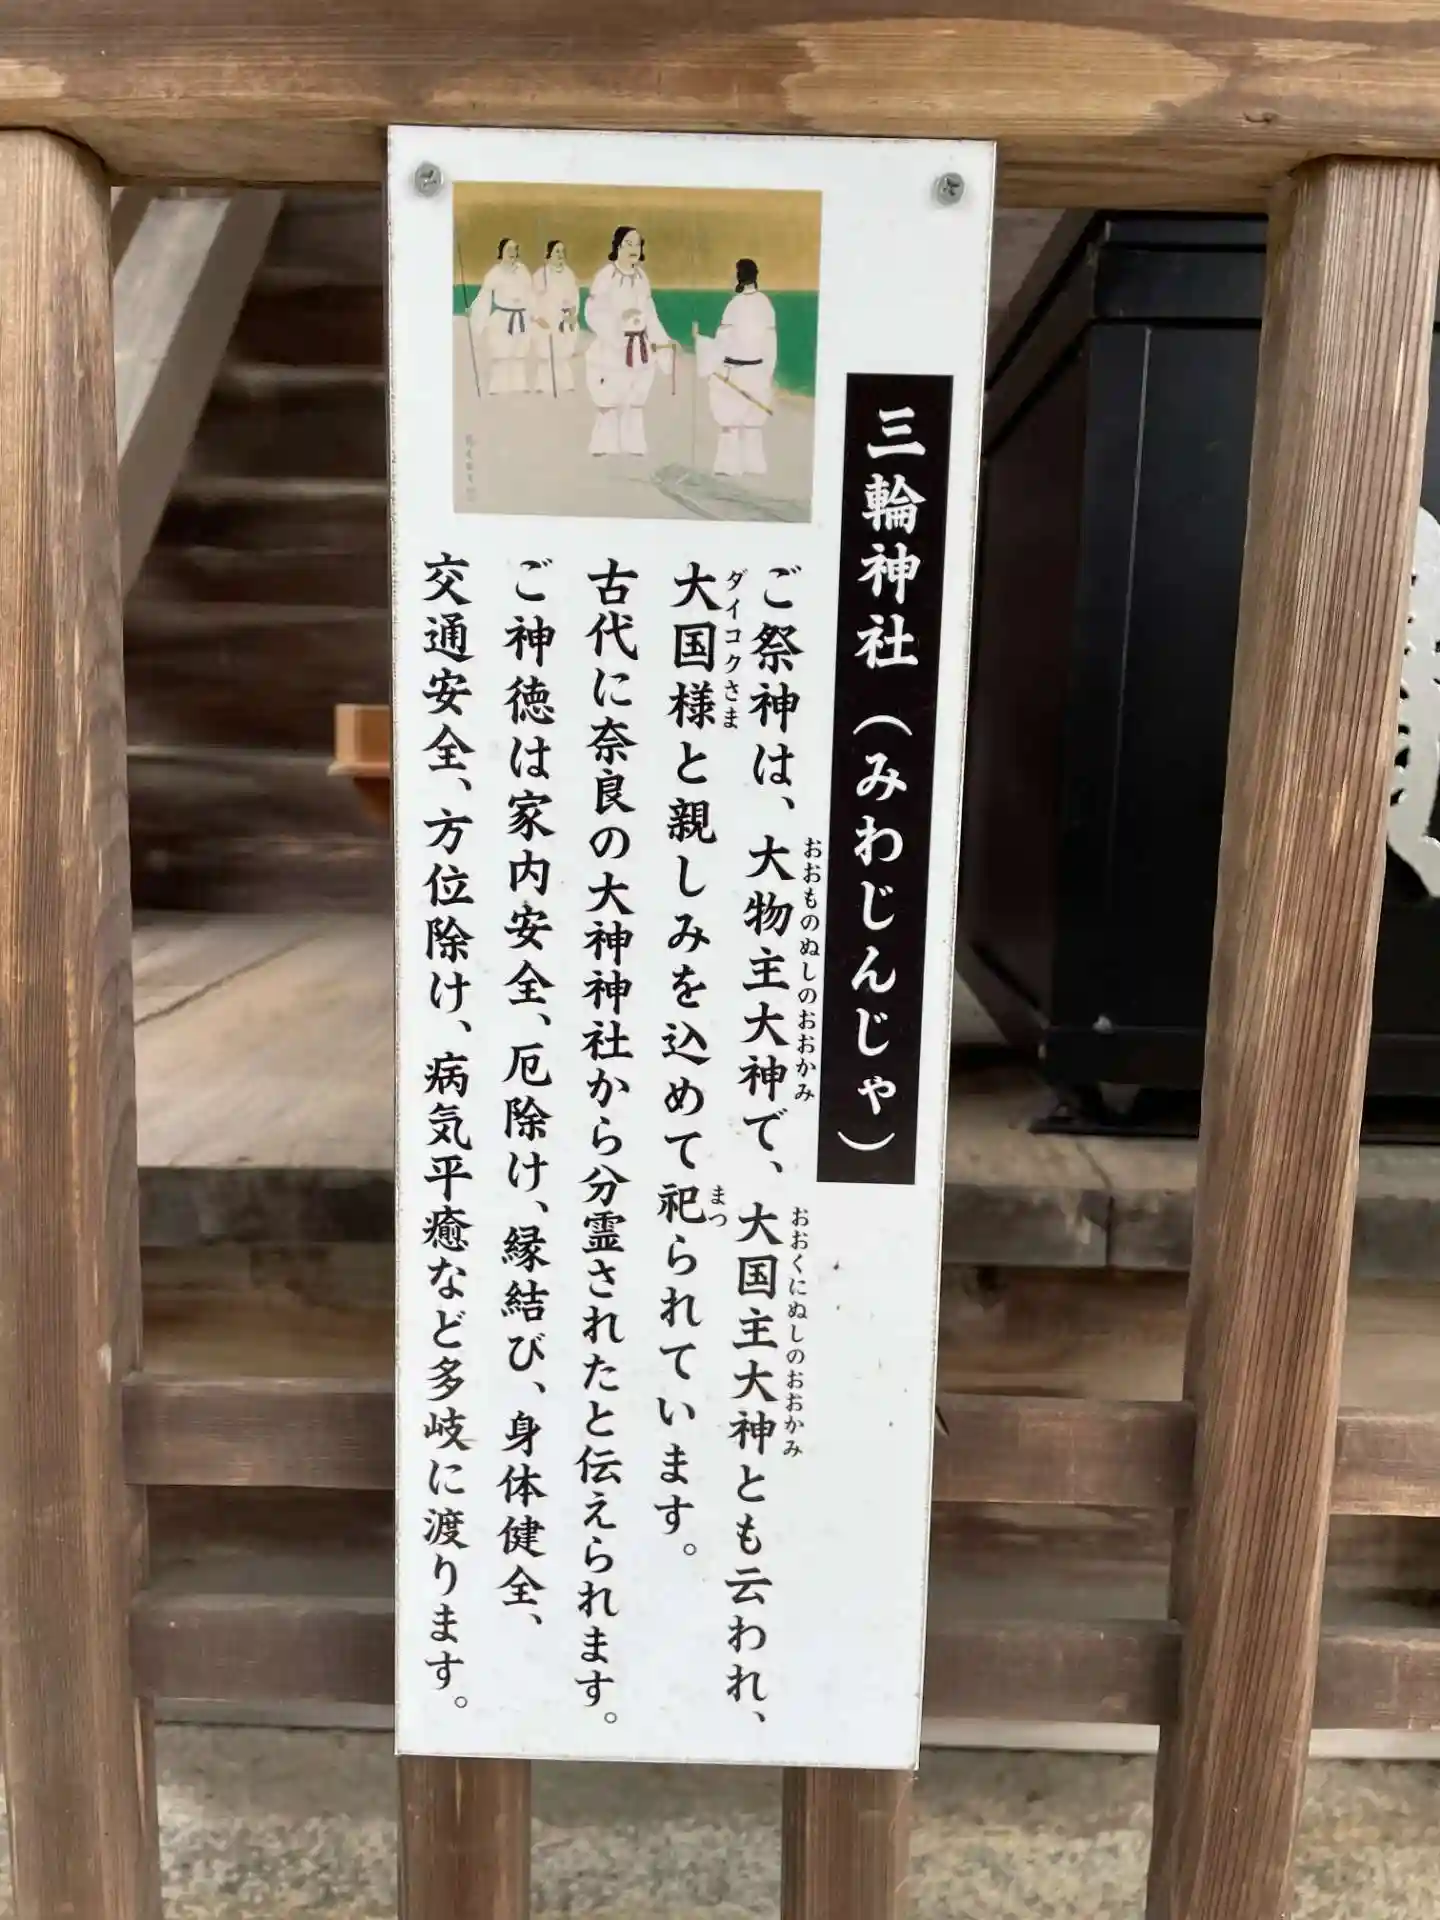 三輪神社(みわじんじゃ)
ご祭神は、大物主大神で、大国主大神とも云われ、
おおものぬしのおおかみ
おおくにぬしのおおかみ
大国様と親しみを込めて祀られています。
ダイコクさま
まつ
古代に奈良の大神神社から分霊されたと伝えられます。
ご神徳は家内安全、厄除け、縁結び、身体健全、
交通安全、方位除け、病気平癒など多岐に渡ります。